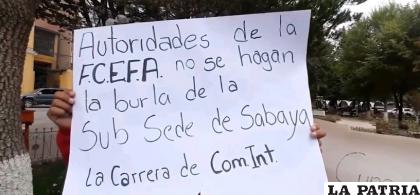 Autoridades de la
F.C.E.F.A. no se hagan
la burla de la
Sub Sede de Sabaya
La Carrera de Com.Int.
LA PATRIA